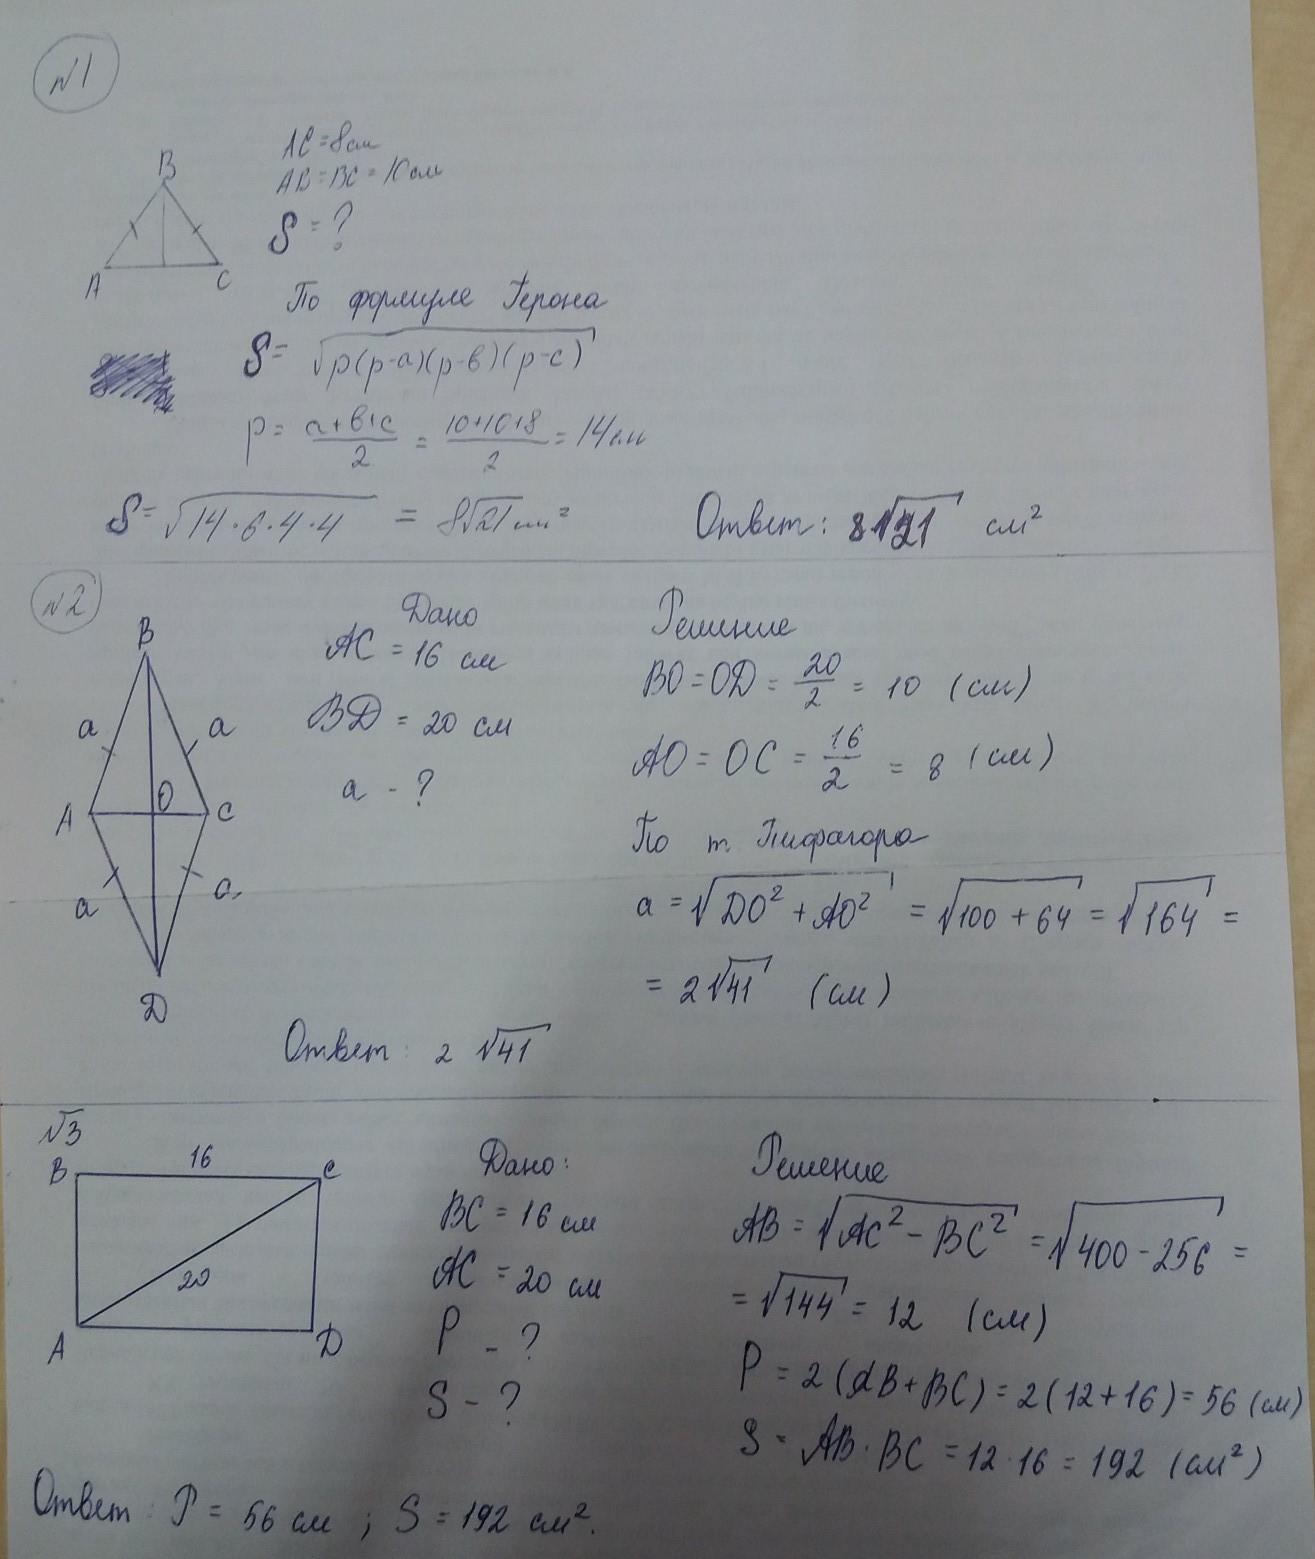 №1
AC = 8см
AB = BC = 10см
S = ?
B
A
C
По формуле Герона
S = √p(p-a)(p-в)(p-c)
p = a+в+c/2 = 10+10+8/2 = 14см
S = √14·6·4·4 = 8√21см²
Ответ: 8√21 см²
№2
B
a
a
A
O
C
a
a
D
Дано
AC = 16 см
BD = 20 см
a - ?
Решение
BO = OD = 20/2 = 10 (см)
AO = OC = 16/2 = 8 (см)
По т. Пифагора
a = √DO² + AO² = √100 + 64 = √164 =
= 2√41 (см)
Ответ: 2 √41
№3
B
16
C
20
A
D
Дано:
BC = 16 см
AC = 20 см
P - ?
S - ?
Решение
AB = √AC² - BC² = √400 - 256 =
= √144 = 12 (см)
P = 2(AB + BC) = 2(12 + 16) = 56 (см)
S = AB · BC = 12 · 16 = 192 (см²)
Ответ: P = 56 см ; S = 192 см².